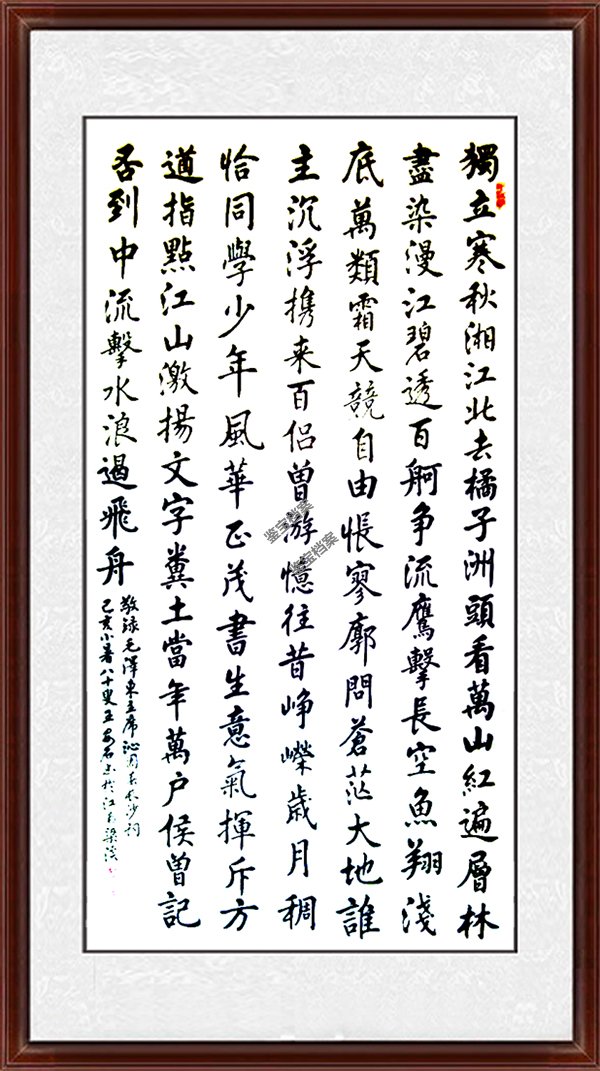 獨立寒秋湘江北去橘子洲頭看萬山紅遍層林
盡染漫江碧透百舸争流鷹擊長空魚翔淺
底萬類霜天競自由悵寥廓問蒼茫大地誰
主沉浮携来百侣曾游憶往昔峥嶸歲月稠
恰同學少年風華正茂書生意氣揮斥方
遒指點江山激揚文字糞土當年萬户侯曾記
否到中流擊水浪遏飛舟
敬録毛澤東主席沁園春長沙詞
己亥小暑八十叟王於江蘇梁溪
鉴宝档案
鉴宝档案